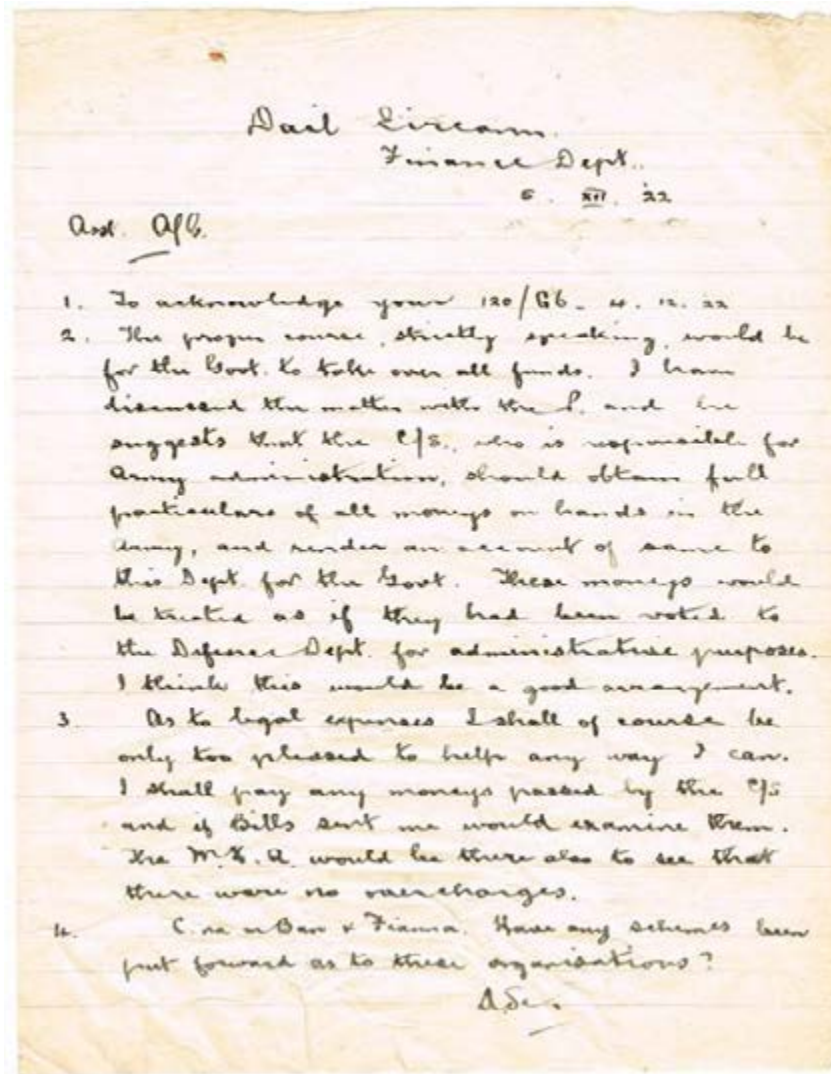 Dail Eireann.
Finance Dept.
6. XII. 22
Asst.
1. To acknowledge your 120/G6. 4. 12. 22
2. The proper course, strictly speaking, would be
for the Govt. to take over all funds. I have
discussed the matter with the P. and he
suggests that the C/S., who is responsible for
Army administration, should obtain full
particulars of all moneys on hands in the
Army, and render an account of same to
this Dept. for the Govt. These moneys would
be treated as if they had been voted to
the Defence Dept. for administrative purposes.
I think this would be a good arrangement.
3. As to legal expenses I shall of course be
only too pleased to help any way I can.
I shall pay any moneys passed by the C/S
and if Bills sent me would examine them.
The would be there also to see that
there were no overcharges.
4. C. na mBan & Fianna. Have any schemes been
put forward as to these organisations?